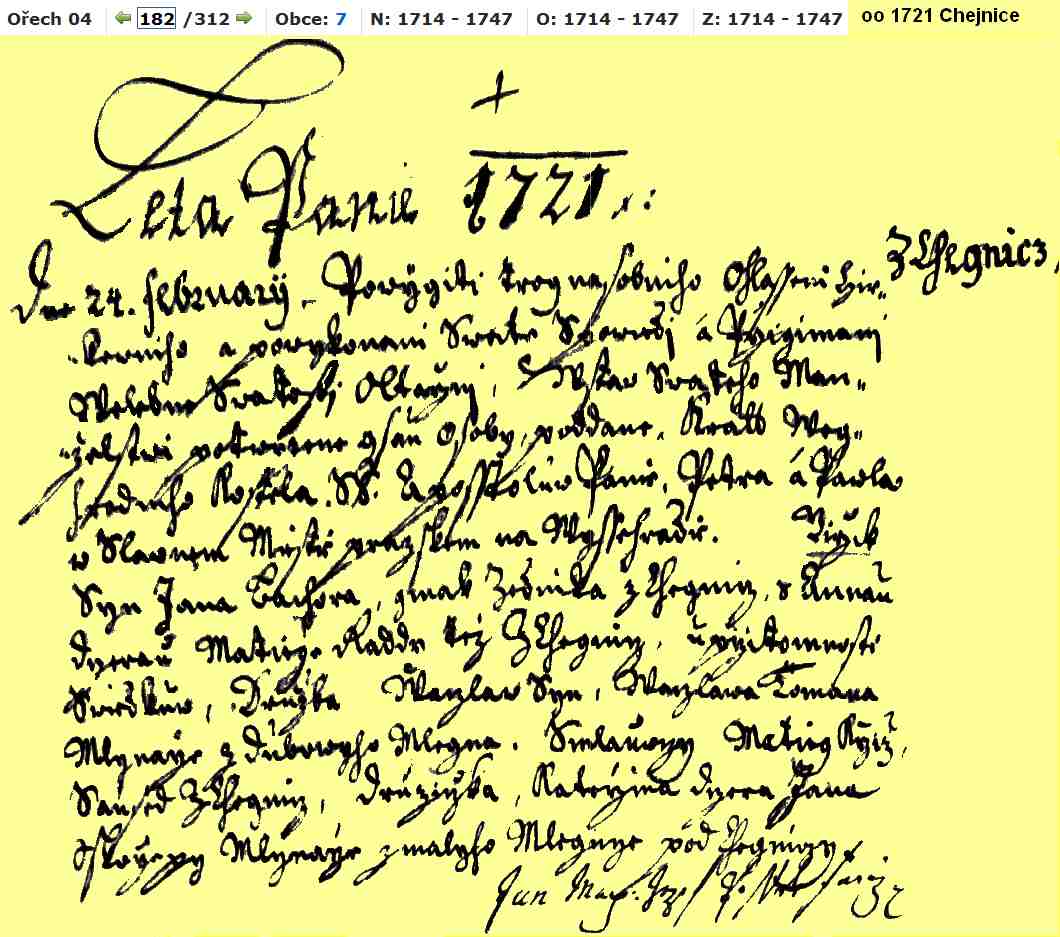 Ořech 04 182 /312 Obce: 7 N: 1714 - 1747 O: 1714 - 1747 Z: 1714 - 1747 oo 1721 Chejnice
+
Leta Panie 1721
Z Chegnicz
Dne 24. February. Porzygiti trognasobniho Ohlasseni Czir„
„kewniho a porzykonani Swate Spowiedi á Przigimani
Welebne Swatosti Oltarzni, Wstav Swateho Man„
„zelstwi potwrzene gsau Osoby, poddane, Kralo Weg„
hradniho Kostela SS. Aposstoluw Panie, Petra á Pawla
w Slawnem Miestie prazskem na Wyssehradie.
Syn Jana Bachora, ginak Zednika z Chegnicz, s Annau
dczerau Matiege Radde też Z Chegnicz, u przitomnosti
Swiedkuw, Druzba Waczlaw Syn, Waczlawa Tomana
Mlynarze z Dubowyho Mlegna. Smlauwczy Matieg Krziż,
Saused Z Chegnicz, druziczka, Katerzina dczera Jana
Mlynarze z malyho Mlegnce pod Chegniczy.
Jan